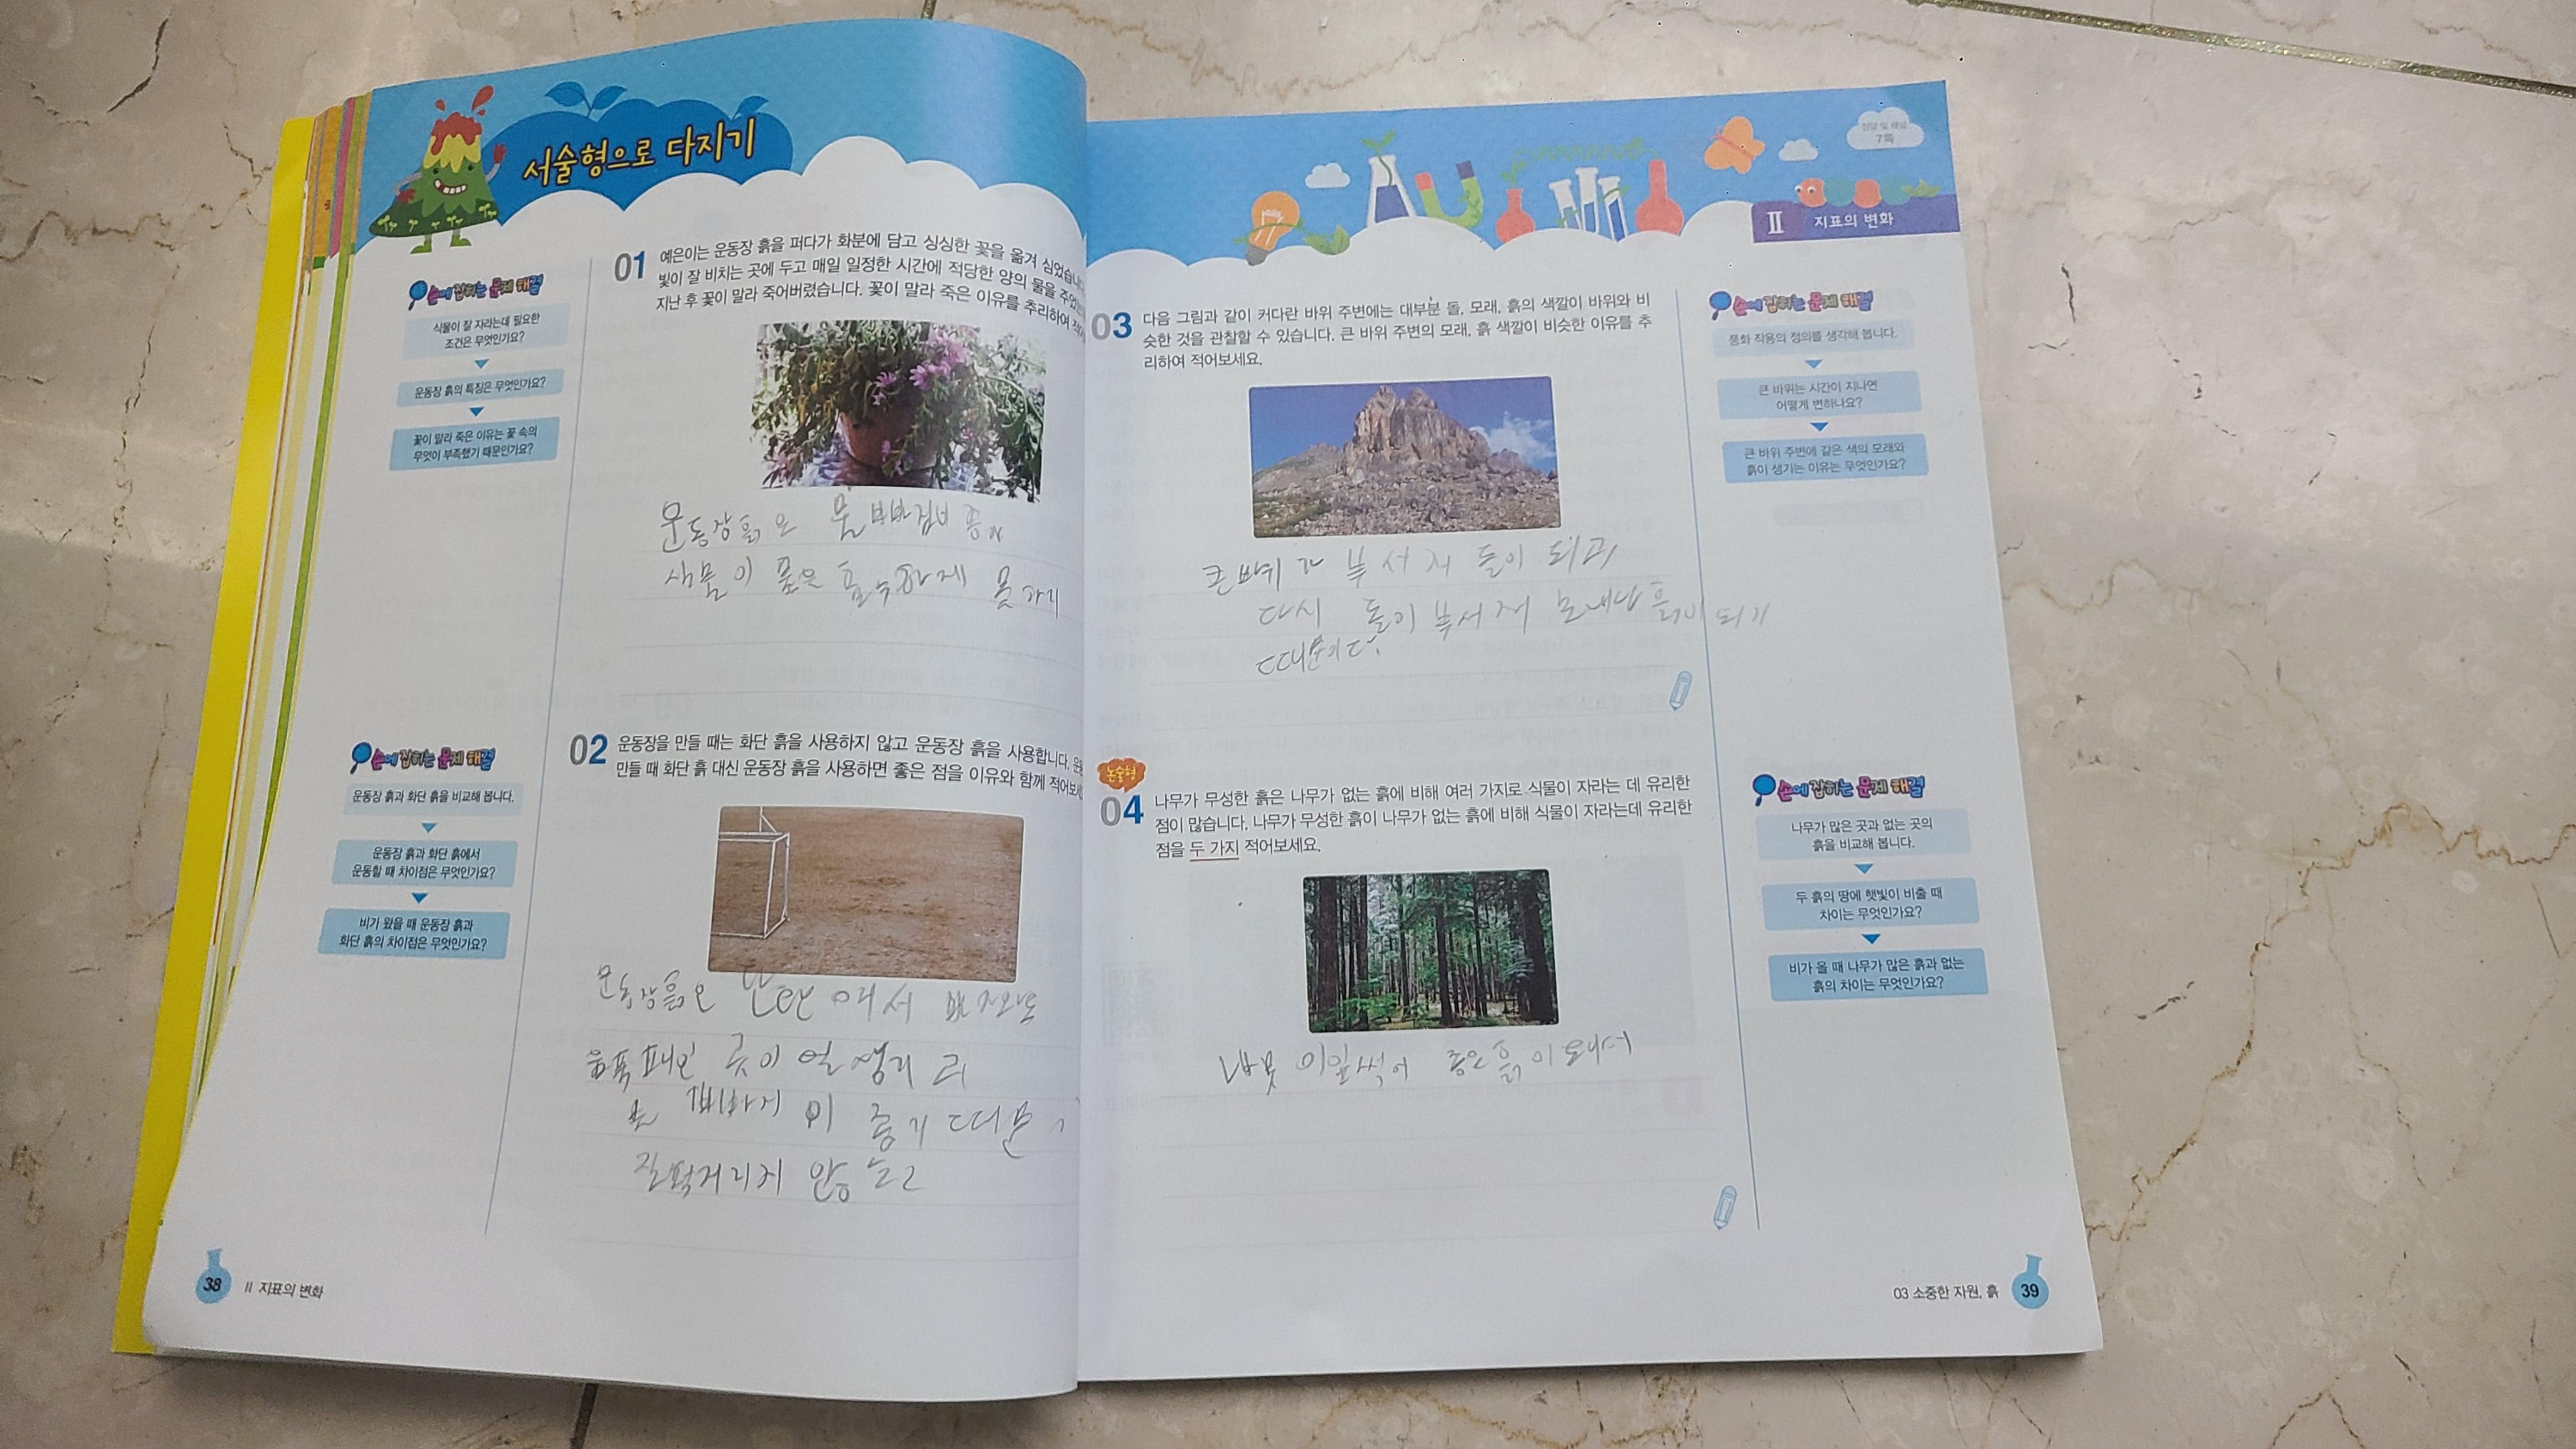 서술형으로 다지기
손에 잡히는 문제 해결
식물이 잘 자라는데 필요한
조건은 무엇인가요?
운동장 흙의 특징은 무엇인가요?
꽃이 말라 죽은 이유는 꽃 속의
무엇이 부족했기 때문인가요?
01 예은이는 운동장 흙을 퍼다가 화분에 담고 싱싱한 꽃을 옮겨 심었습니다
빛이 잘 비치는 곳에 두고 매일 일정한 시간에 적당한 양의 물을 주었
지난 후 꽃이 말라 죽어버렸습니다. 꽃이 말라 죽은 이유를 추리하여
운동장흙은 물
식물이 물은 흡수하게 못
손에 잡히는 문제 해결
운동장 흙과 화단 흙을 비교해 봅니다.
운동장 흙과 화단 흙에서
운동할 때 차이점은 무엇인가요?
비가 왔을 때 운동장 흙과
화단 흙의 차이점은 무엇인가요?
02 운동장을 만들 때는 화단 흙을 사용하지 않고 운동장 흙을 사용합니다.
만들 때 화단 흙 대신 운동장 흙을 사용하면 좋은 점을 이유와 함께 적어보세
운동장흙은 단단해서
움푹 패인 곳이 얼 생기고
좋기 때문
질퍽거리지 않
38 Ⅱ 지표의 변화
정답 및 해설
7쪽
Ⅱ 지표의 변화
03 다음 그림과 같이 커다란 바위 주변에는 대부분 돌, 모래, 흙의 색깔이 바위와 비
슷한 것을 관찰할 수 있습니다. 큰 바위 주변의 모래, 흙 색깔이 비슷한 이유를 추
리하여 적어보세요.
큰바위가 부서져 돌이 되고
다시 돌이 부서져 모래나 흙이 되기
때문이다.
손에 잡히는 문제 해결
풍화 작용의 정의를 생각해 봅니다.
큰 바위는 시간이 지나면
어떻게 변하나요?
큰 바위 주변에 같은 색의 모래와
흙이 생기는 이유는 무엇인가요?
논술형
04 나무가 무성한 흙은 나무가 없는 흙에 비해 여러 가지로 식물이 자라는 데 유리한
점이 많습니다. 나무가 무성한 흙이 나무가 없는 흙에 비해 식물이 자라는데 유리한
점을 두 가지 적어보세요.
썩어 좋은 흙이 돼서
손에 잡히는 문제 해결
나무가 많은 곳과 없는 곳의
흙을 비교해 봅니다.
두 흙의 땅에 햇빛이 비출 때
차이는 무엇인가요?
비가 올 때 나무가 많은 흙과 없는
흙의 차이는 무엇인가요?
03 소중한 자원, 흙 39